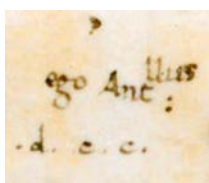 ego Antllus :
.d. c. c.